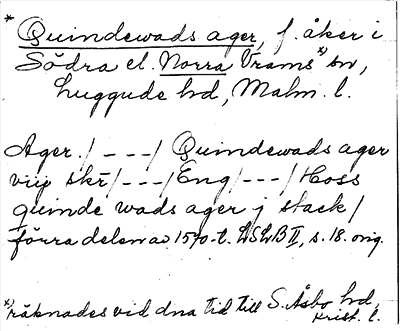 * Quindewads ager, f. åker i
Södra el. Norra Vrams *) sn,
Luggude hd, Malm. l.
Ager./ - - -/ Quindewads ager
viij skr/ - - -/ Eng/ - - -/ Hoss
quinde wads ager j stack/
förra delen av 1570-t. LSLB II, s. 18. orig.
*) räknades vid dna tid till S. Åsbo hd,
Krist. l.